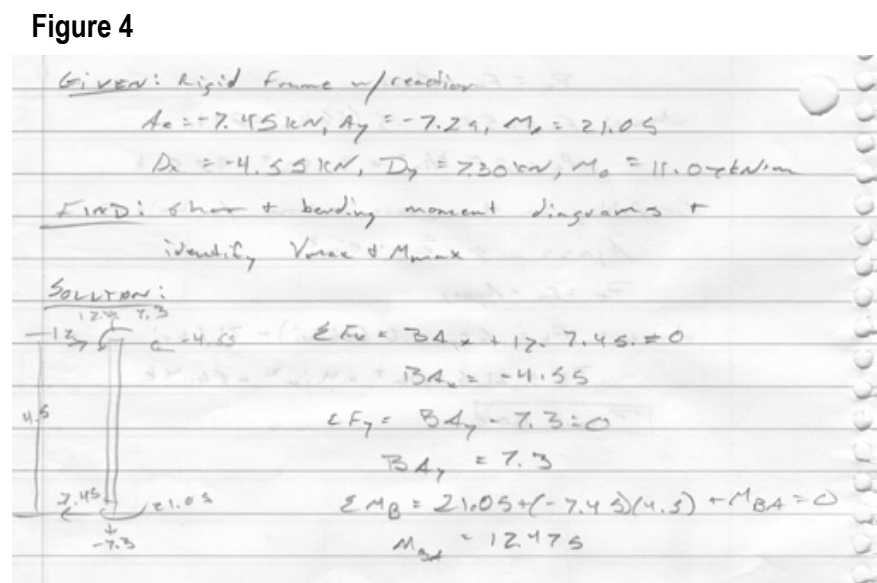 Figure 4
GIVEN: Rigid Frame w/reaction
Ax = -7.45 kN, Ay = -7.29, Mo = 21.05
Dx = -4.55 kN, Dy = 7.30 kN, Mo = 11.07 kN·m
FIND: Shear & bending moment diagrams &
identify Vmax & Mmax
SOLUTION:
7.3
12 -4.55 ΣFx = BAx + 12 - 7.45 = 0
BAx = -4.55
4.5 ΣFy = BAy - 7.3 = 0
BAy = 7.3
7.45 21.05 ΣMB = 21.05+(-7.45)(4.5) + MBA = 0
-7.3 MBA = 12.475